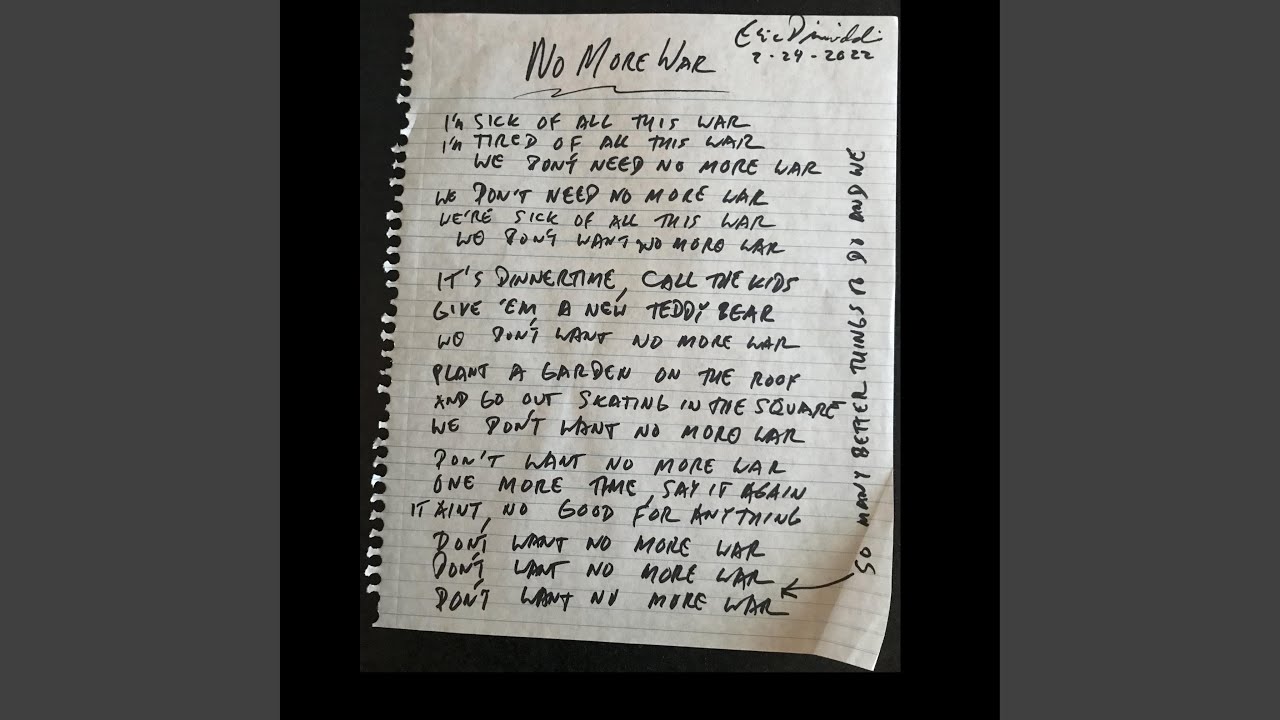 No More War
Eric
2-24-2022
I'm SICK OF ALL THIS WAR
I'm TIRED OF ALL THIS WAR
WE DON'T NEED NO MORE WAR
WE DON'T NEED NO MORE WAR
WE'RE SICK OF ALL THIS WAR
WE DON'T WANT NO MORE WAR
IT'S DINNERTIME, CALL THE KIDS
GIVE 'EM A NEW TEDDY BEAR
WE DON'T WANT NO MORE WAR
PLANT A GARDEN ON THE ROOF
AND GO OUT SKATING IN THE SQUARE
WE DON'T WANT NO MORE WAR
DON'T WANT NO MORE WAR
ONE MORE TIME, SAY IT AGAIN
IT AIN'T NO GOOD FOR ANYTHING
DON'T WANT NO MORE WAR
DON'T WANT NO MORE WAR
DON'T WANT NO MORE WAR
SO MANY BETTER THINGS TO DO AND WE